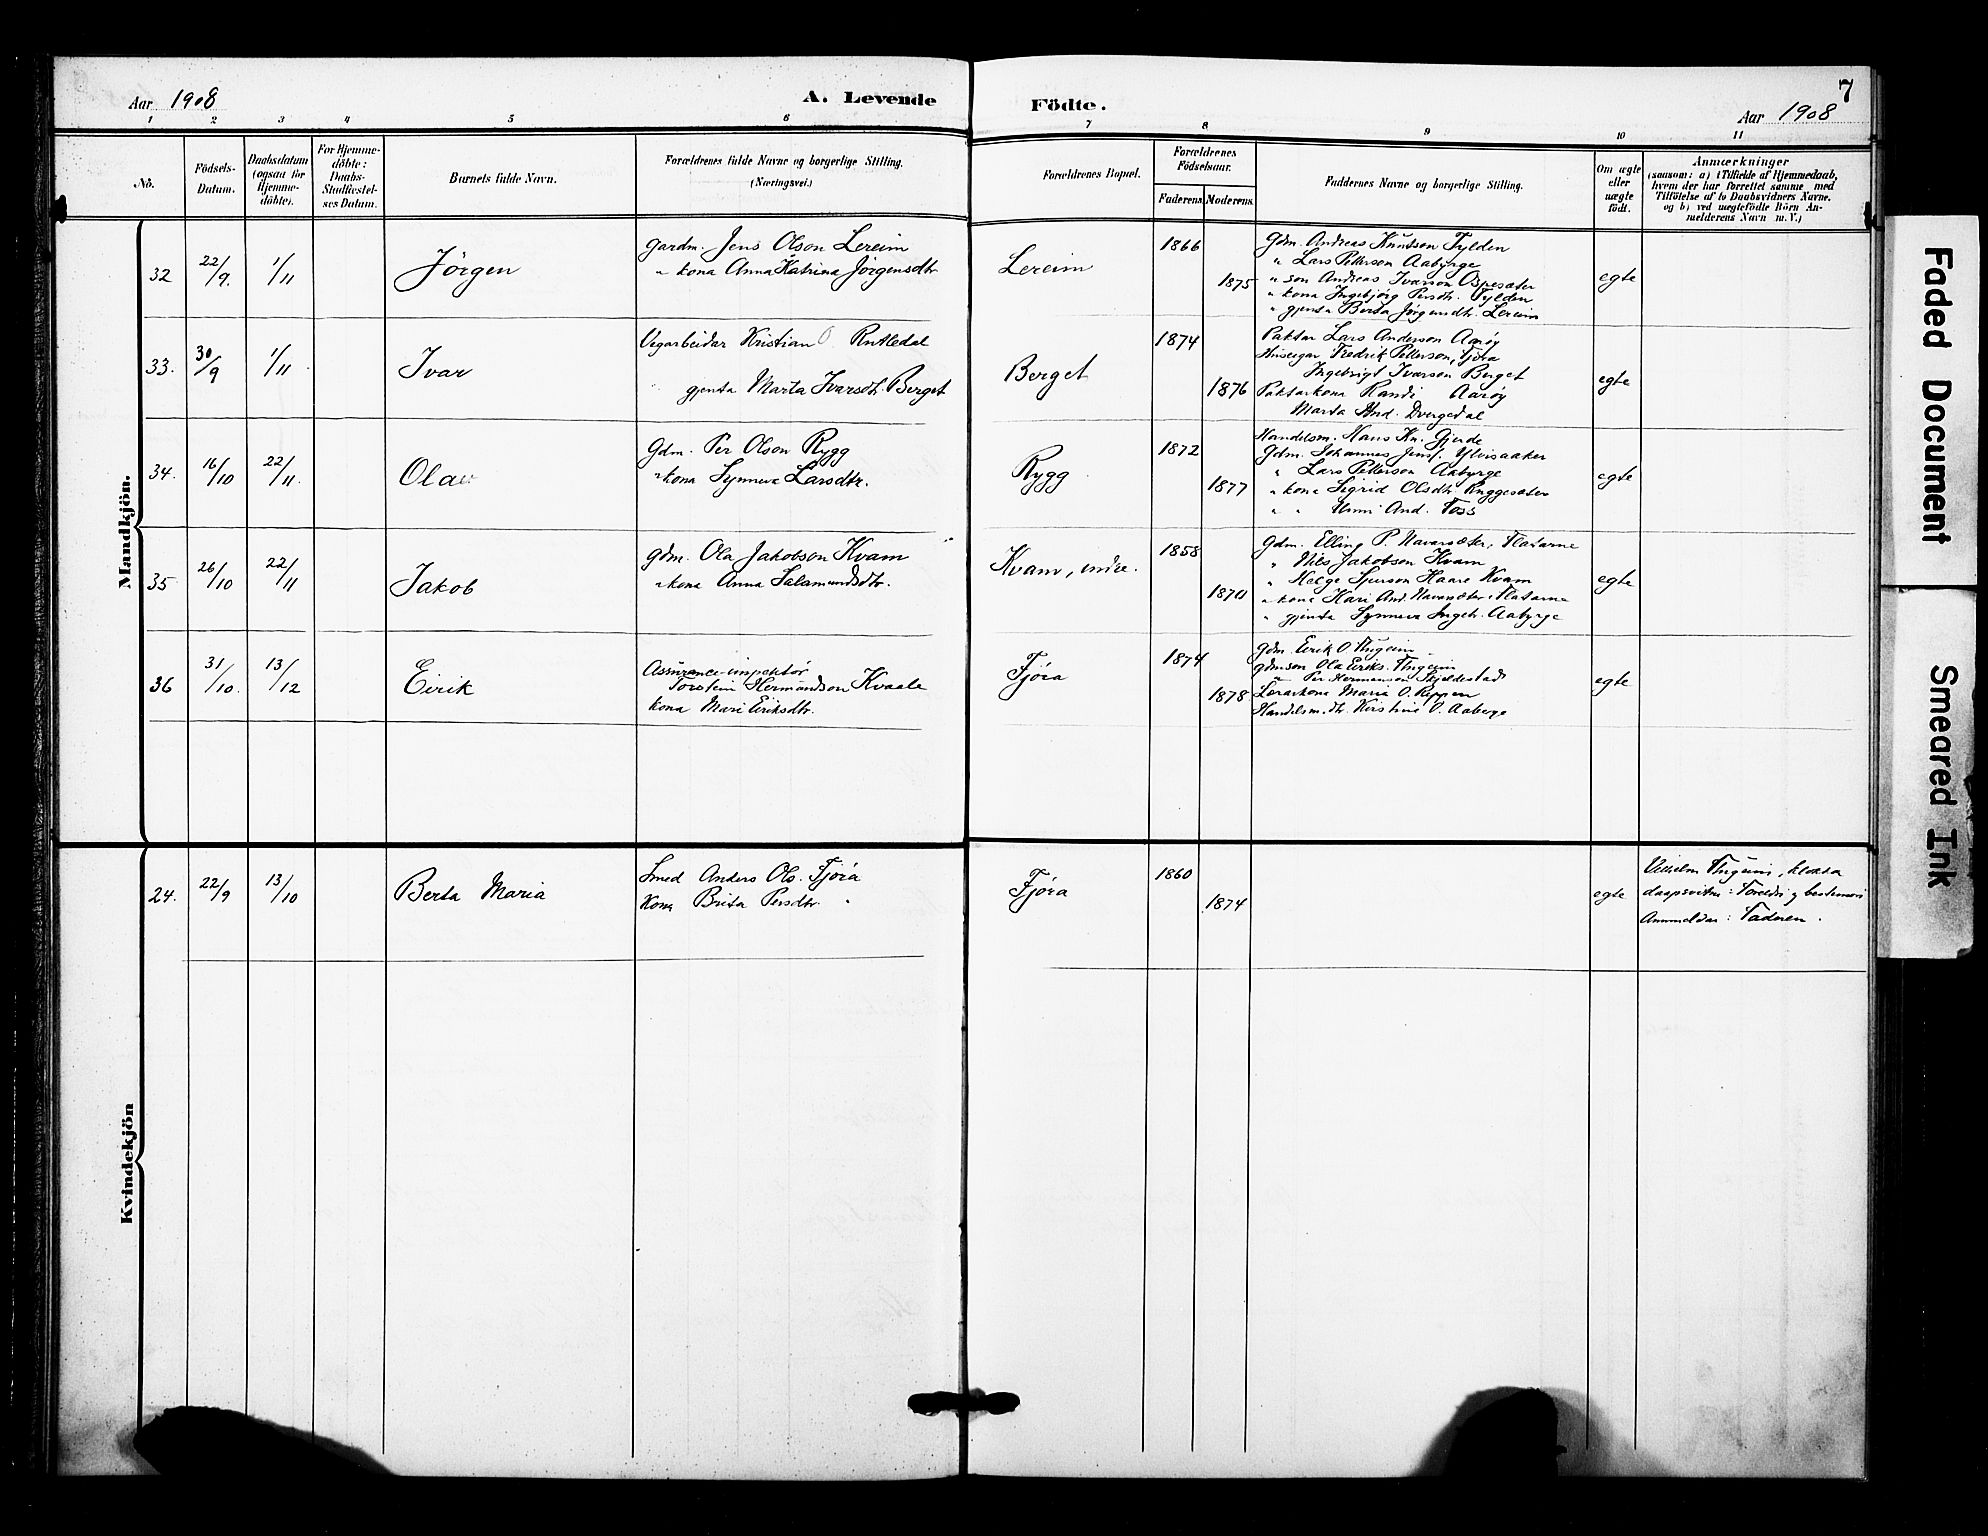 7
Aar 1908
A. Levende
Födte.
Aar 1908
1 2 3 4 5 6 7 8 9 10 11
No.
Födsels-
Datum.
Daabsdatum
(ogsaa for
Hjemme-
döbte).
For Hjemme-
döbte:
Daabs-
Stadfæstel-
ses Datum.
Barnets fulde Navn.
Forældrenes fulde Navne og borgerlige Stilling.
(Næringsvei.)
Forældrenes Bopæl.
Forældrenes
Födselsaar.
Faderens Moderens
Faddernes Navne og borgerlige Stilling.
Om ægte
eller
uægte
födt.
Anmærkninger
(saasom: a) i Tilfælde af Hjemmedaab,
hvem der har forrettet samme med
Tilföielse af to Daabsvidners Navne.
og b) ved uægtefödte Börn An-
melderens Navn m. V.)
Mandkjön.
32 22/9. 1/11 Jörgen
Gardm. Jens Olson Lereim
" kona Anna Katrina Jörgensdtr
Lereim 1866 1875
Gdm. Andreas Knutson Fylden
" Lars Petterson Aabyrge
" son Andreas Ivarson Ospesæter
" kona Ingebjörg Persdtr. Fylden
" gjenta Berta Jörgensdtr. Lereim
egte
33. 30/9 1/11. Ivar
Vegarbeidar Kristian O. Rutledal
gjenta Marta Ivarsdtr. Berget
Berget 1874 1876
Paktar Lars Anderson Aaröy
Huseigar Fredrik Petterson, Fjöra
Ingebrigt Ivarson Berget
Paktarkona Randi Aaröy
Marta And. Dvergedal
egte
34. 16/10 22/11. Olav
Gdm. Per Olson Rygg
" kona Synneva Larsdtr.
Rygg 1872 1877
Handelsm. Hans Kn. Gjerde
Gdm. Johannes Jens. Ylvisaaker
" Lars Petterson Aabyrge
" kona Sigrid Olsdtr Ryggesæter
" " And. Foss
egte
35 26/10 22/11 Jakob
Gdm. Ola Jakobson Kvam
" kona Anna Salamundsdtr.
Kvam, indre. 1858 1870
Gdm. Elling P. Navarsæter, Flatarne
" Nils Jakobson Kvam
" Helge Haare Kvam
" kona Kari And. Navarsæter, Flatarne
" gjenta Synneva Ingebr. Aabyrge
egte
36 31/10. 13/12 Eirik
Assurance-inspektör
Torstein Hermundson Kvaale
kona Mari Eriksdtr.
Fjöra 1874 1878
Gdm. Eirik O. Thugeim
Gdmson Ola Eiriks. Thugeim
" Per Hermanson Skjeldestad
Lerarkona Maria O. Reppen
Handelsm.dtr. Kirstine O. Aaberge
egte
Kvindekjön
24. 22/9 13/10 Berta Maria
Smed Anders Ols. Fjöra
Kona Brita Persdtr. "
Fjöra 1860 1874
egte
Vilhelm Thugeim, klokka
daapsvitne: Foreldri og bestemori
Anmeldar: Faderen.
Faded Document
Smeared Ink